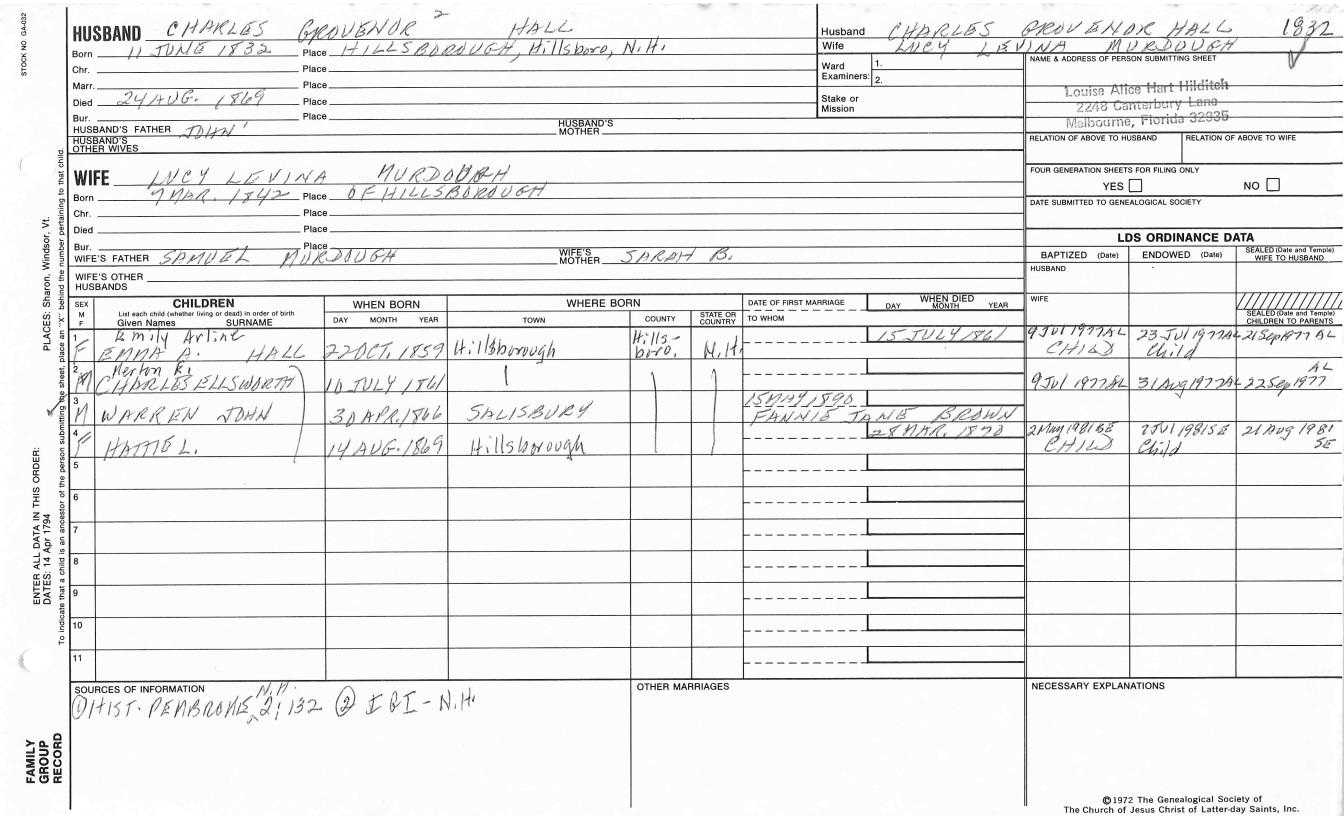 STOCK NO GA-032
HUSBAND CHARLES GROVENOR 2 HALL
Born 11 JUNE 1832 Place HILLSBOROUGH, Hillsboro, N.H.
Chr. Place
Marr. Place
Died 24 AUG. 1869 Place
Bur. Place
HUSBAND'S FATHER JOHN' HUSBAND'S MOTHER
HUSBAND'S OTHER WIVES
Husband CHARLES GROVENOR HALL 1832
Wife LUCY LEVINA MURDOUGH
Ward Examiners: 1.
2.
Stake or Mission
NAME & ADDRESS OF PERSON SUBMITTING SHEET
Louise Alice Hart Hilditch
2248 Canterbury Lane
Melbourne, Florida 32935
RELATION OF ABOVE TO HUSBAND RELATION OF ABOVE TO WIFE
FOUR GENERATION SHEETS FOR FILING ONLY
YES NO
DATE SUBMITTED TO GENEALOGICAL SOCIETY
WIFE LUCY LEVINA MURDOUGH
Born 7 MAR. 1842 Place OF HILLSBOROUGH
Chr. Place
Died Place
Bur. Place
WIFE'S FATHER SAMUEL MURDOUGH WIFE'S MOTHER SARAH B.
WIFE'S OTHER HUSBANDS
LDS ORDINANCE DATA
BAPTIZED (Date) ENDOWED (Date) SEALED (Date and Temple) WIFE TO HUSBAND
HUSBAND
WIFE
SEALED (Date and Temple) CHILDREN TO PARENTS
SEX M F CHILDREN WHEN BORN WHERE BORN DATE OF FIRST MARRIAGE WHEN DIED
List each child (whether living or dead) in order of birth
Given Names SURNAME DAY MONTH YEAR TOWN COUNTY STATE OR COUNTRY TO WHOM DAY MONTH YEAR
1 Emily Arline
F EMMA A. HALL 22 OCT. 1859 Hillsborough Hills-boro. N.H. 15 JULY 1861 9 Jul 1977 AL CHILD 23 Jul 1977 AL Child 21 Sep 1977 AL
2 Merton R.
M CHARLES ELLSWORTH 10 JULY 1861 9 Jul 1977 AL 31 Aug 1977 AL 22 Sep 1977 AL
3 M WARREN JOHN 30 APR. 1866 SALISBURY 15 MAY 1890 FANNIE JANE BROWN
4 F HATTIE L. 14 AUG. 1869 Hillsborough 28 MAR. 1870 2 May 1981 SE CHILD 7 Jul 1981 SE Child 21 Aug 1981 SE
5
6
7
8
9
10
11
SOURCES OF INFORMATION
① HIST. PEMBROKE N.H. 2:132 ② IGI - N.H.
OTHER MARRIAGES
NECESSARY EXPLANATIONS
ENTER ALL DATA IN THIS ORDER:
DATES: 14 Apr 1794
PLACES: Sharon, Windsor, Vt.
To indicate that a child is an ancestor of the person submitting the sheet, place an "X" behind the number pertaining to that child.
FAMILY GROUP RECORD
©1972 The Genealogical Society of
The Church of Jesus Christ of Latter-day Saints, Inc.